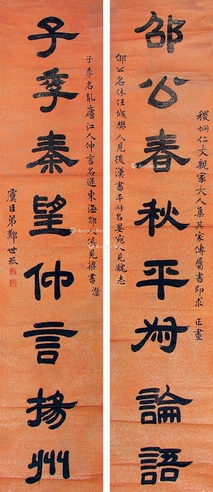 稷垌仁丈親家大人集其家傳屬書即求 正
邵公春秋平叔論語
邵公名休任城樊人見後漢書平叔名晏宛人見魏志
子季名胤廬江人仲言名遜東海郯人俱見梁書
子季秦望仲言揚州
虞臣弟鄭世